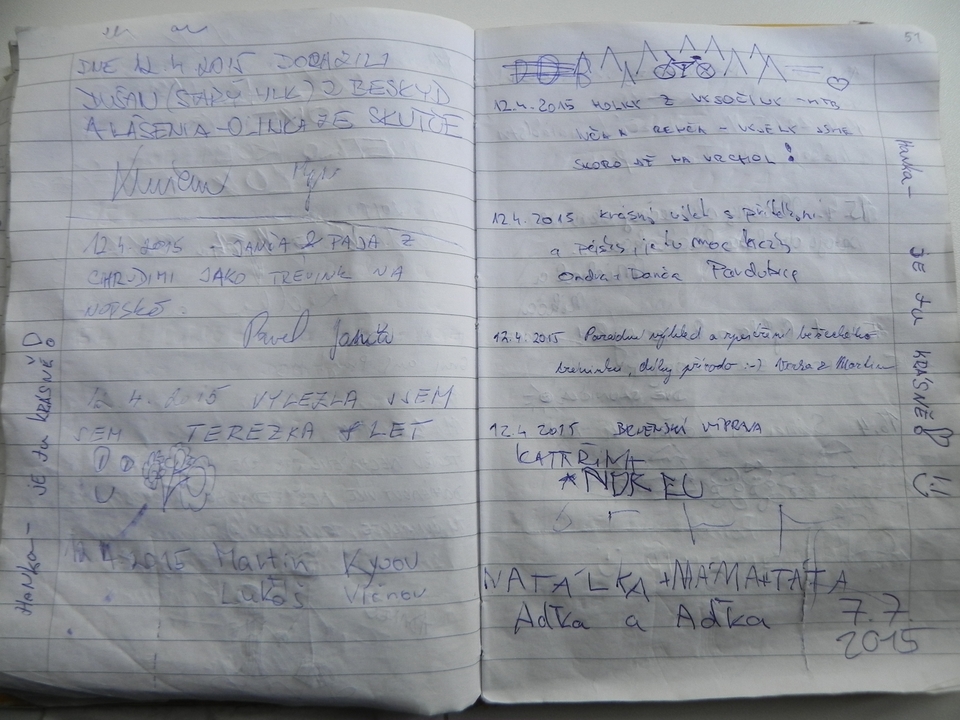 DNE 12.4.2015 DORAZILI
DUŠAN (STARÝ VLK) Z BESKYD
A LÁSENIA - OLINKA ZE SKUTČE
12.4.2015 - JANČA & PÁJA Z
CHRUDIMI JAKO TRÉNINK NA
NORSKO.
Pavel Janata
12.4.2015 VYLEZLA JSEM
SEM TEREZKA LET
12.4.2015 Martin Kyjov
Lukáš Vlčnov
Hanka - JE tu KRÁSNĚ
51
12.4.2015 HOLKY Z VYSOČINY - MTB
VĚRA RENČA - VYJELY JSME
SKORO AŽ NA VRCHOL!
12.4.2015 krásný výlet s přítelkyní
a pejsky, je tu moc hezky
Ondra + Danča Pardubice
12.4.2015 Parádní výhled a zpestření běžeckého
tréninku, díky přírodo :-) Verča z Martin
12.4.2015 BRNĚNSKÁ VÝPRAVA
KATEŘINA
ANDREJ
NATÁLKA + MÁMA + TÁTA
Aďka a Aďka 7.7.
2015
Hanka - JE tu KRÁSNĚ